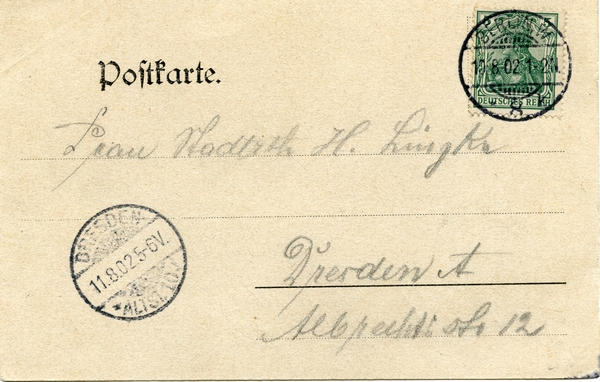 Postkarte.
BERLIN W
10.8.02.1-2N.
8 k
DEUTSCHES REICH
Frau Stadtrth H. Lingke
DRESDEN
11.8.02.5-6V.
*ALTST.(1.)*
Dresden A
Albrechtstr 12